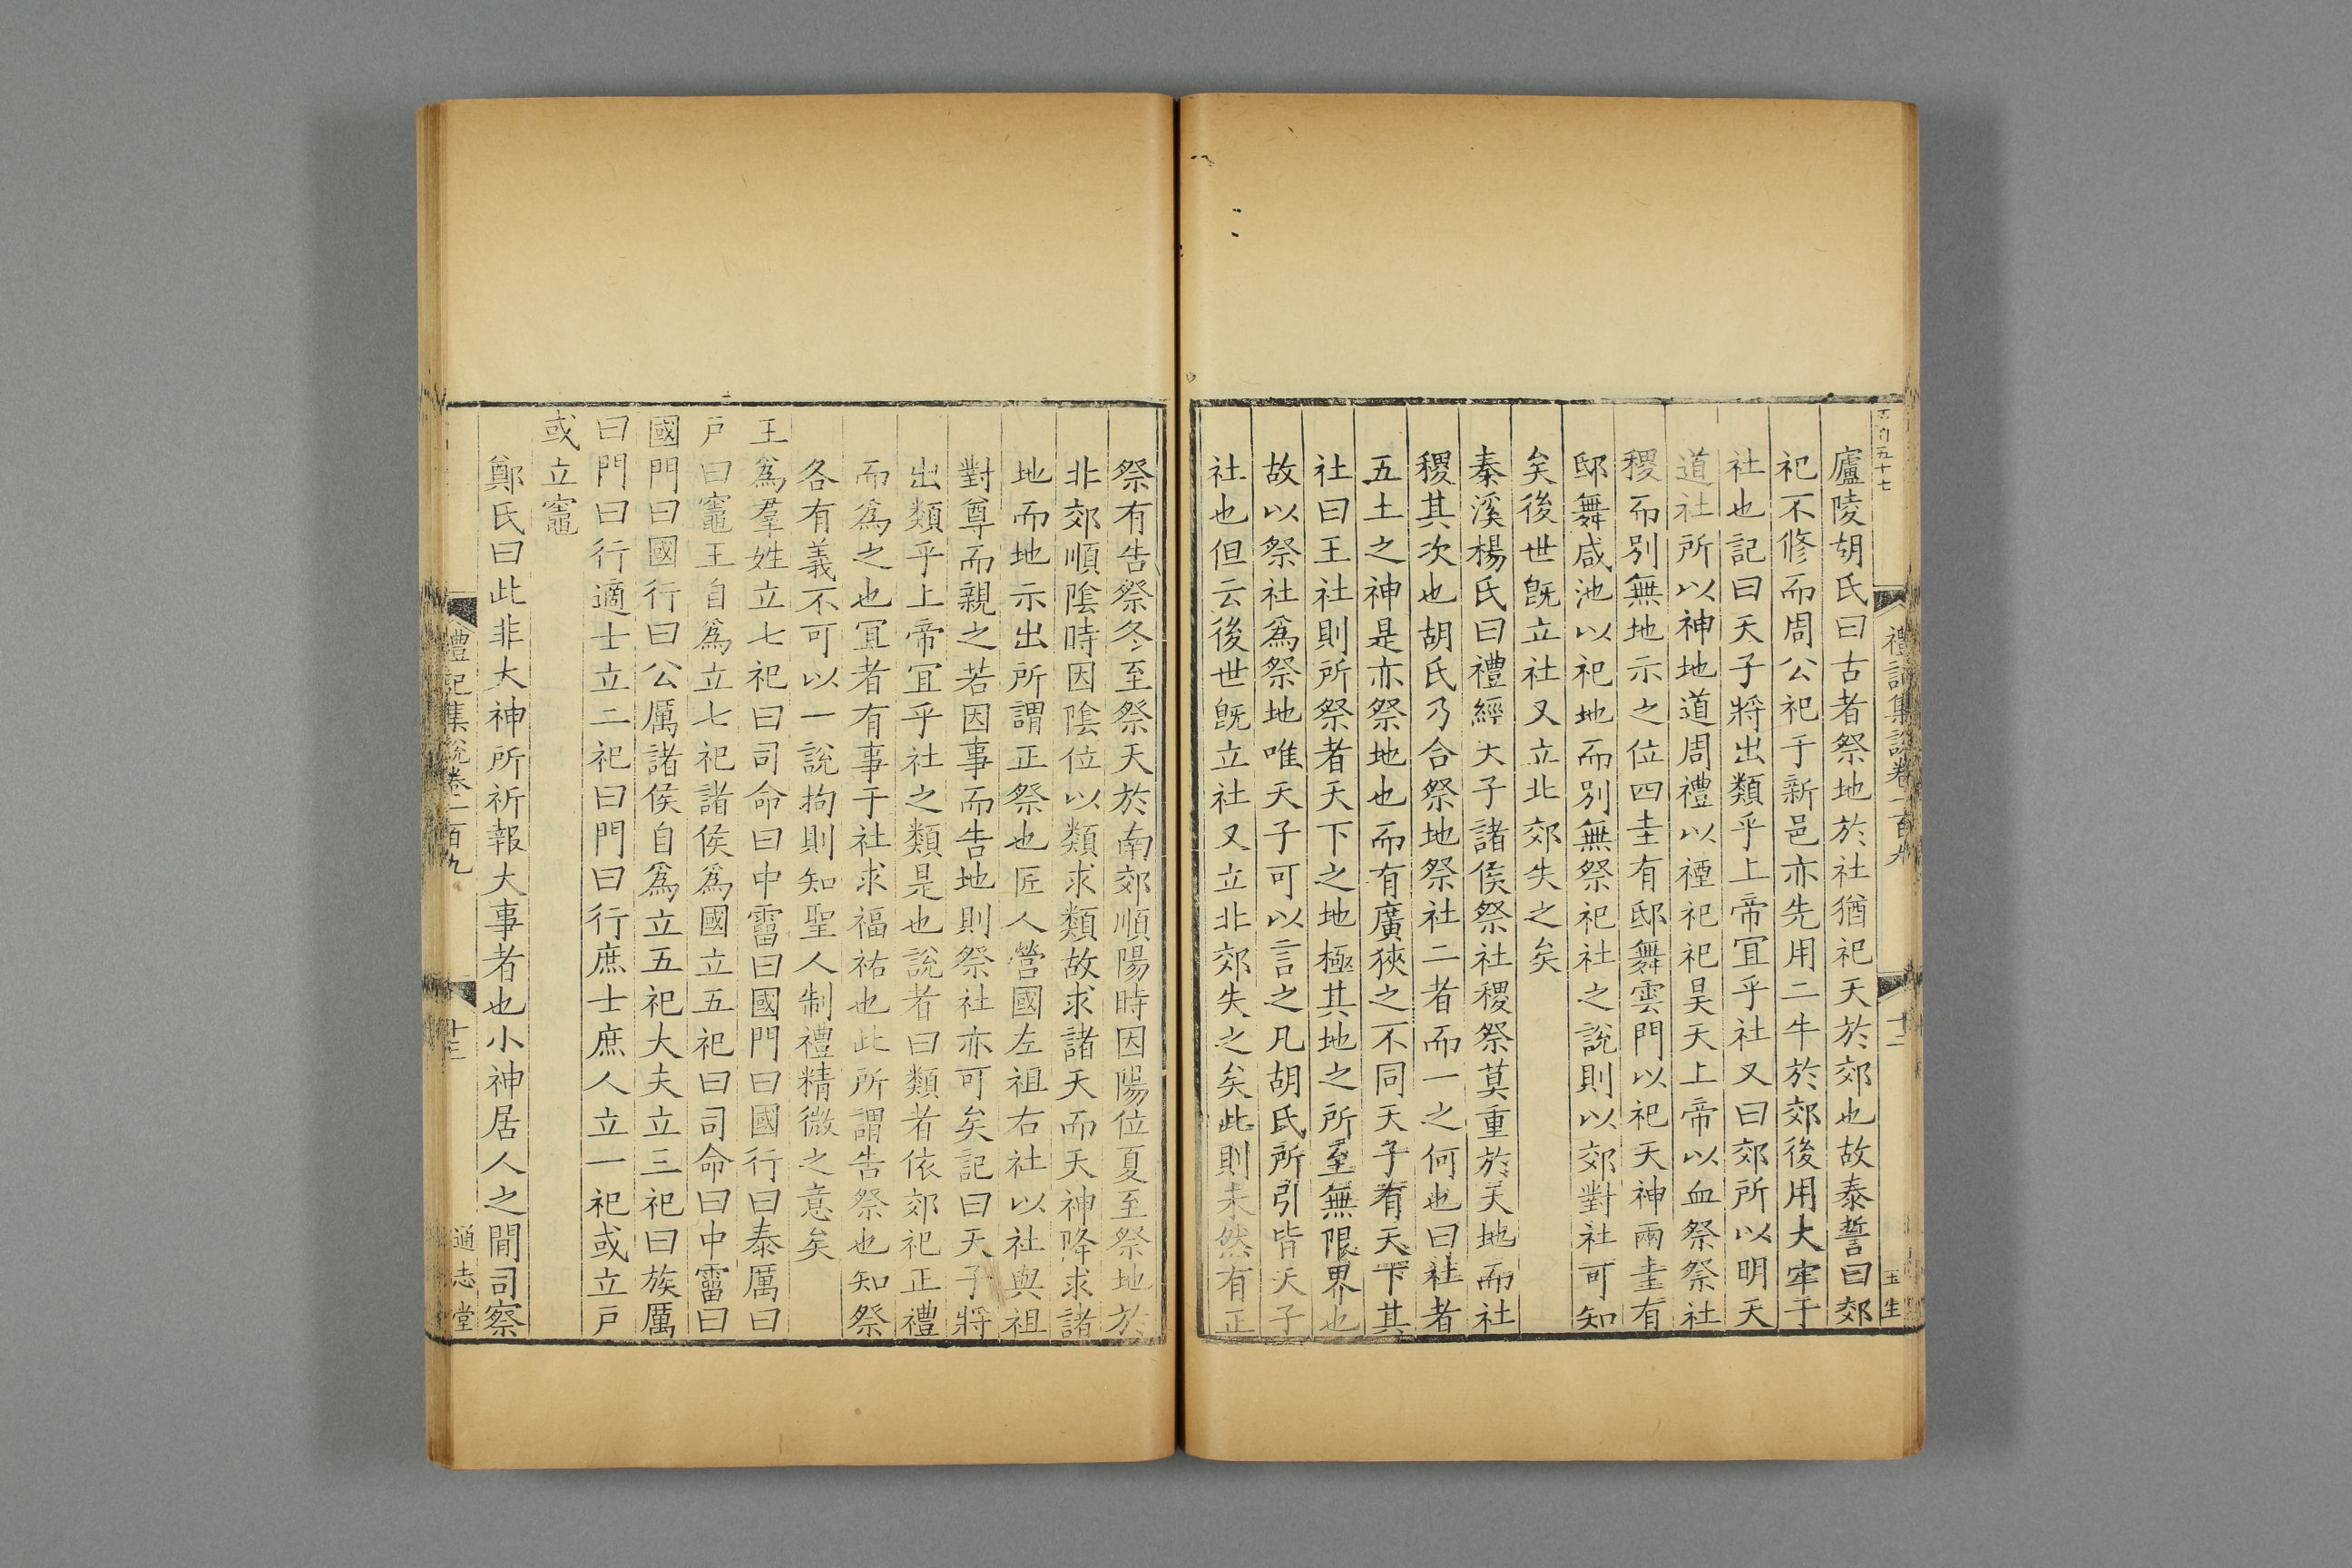 五十七
禮記集說卷一百九
十二
玉生
廬陵胡氏曰古者祭地於社猶祀天於郊也故泰誓曰郊
祀不修而周公祀于新邑亦先用二牛於郊後用大牢于
社也記曰天子將出類乎上帝冝乎社又曰郊所以明天
道社所以神地道周禮以禋祀祀昊天上帝以血祭祭社
稷而別無地示之位四圭有邸舞雲門以祀天神兩圭有
邸舞咸池以祀地而別無祭祀社之說則以郊對社可知
矣後世旣立社又立北郊失之矣
秦溪楊氏曰禮經天子諸侯祭社稷祭莫重於天地而社
稷其次也胡氏乃合祭地祭社二者而一之何也曰社者
五土之神是亦祭地也而有廣狹之不同天子有天下其
社曰王社則所祭者天下之地極其地之所至無限界也
故以祭社爲祭地唯天子可以言之凡胡氏所引皆天子
社也但云後世旣立社又立北郊失之矣此則未然有正
祭有告祭冬至祭天於南郊順陽時因陽位夏至祭地於
非郊順隂時因隂位以類求類故求諸天而天神降求諸
地而地示出所謂正祭也匠人營國左祖右社以社與祖
對尊而親之若因事而告地則祭社亦可矣記曰天子將
出類乎上帝冝乎社之類是也說者曰類者依郊祀正禮
而爲之也冝者有事于社求福祐也此所謂告祭也知祭
各有義不可以一說拘則知聖人制禮精微之意矣
王爲羣姓立七祀曰司命曰中霤曰國門曰國行曰泰厲曰
戶曰竈王自爲立七祀諸侯爲國立五祀曰司命曰中霤曰
國門曰國行曰公厲諸侯自爲立五祀大夫立三祀曰族厲
曰門曰行適士立二祀曰門曰行庶士庶人立一祀或立戶
或立竈
鄭氏曰此非大神所祈報大事者也小神居人之間司察
禮記集說卷一百九
十三
通志堂